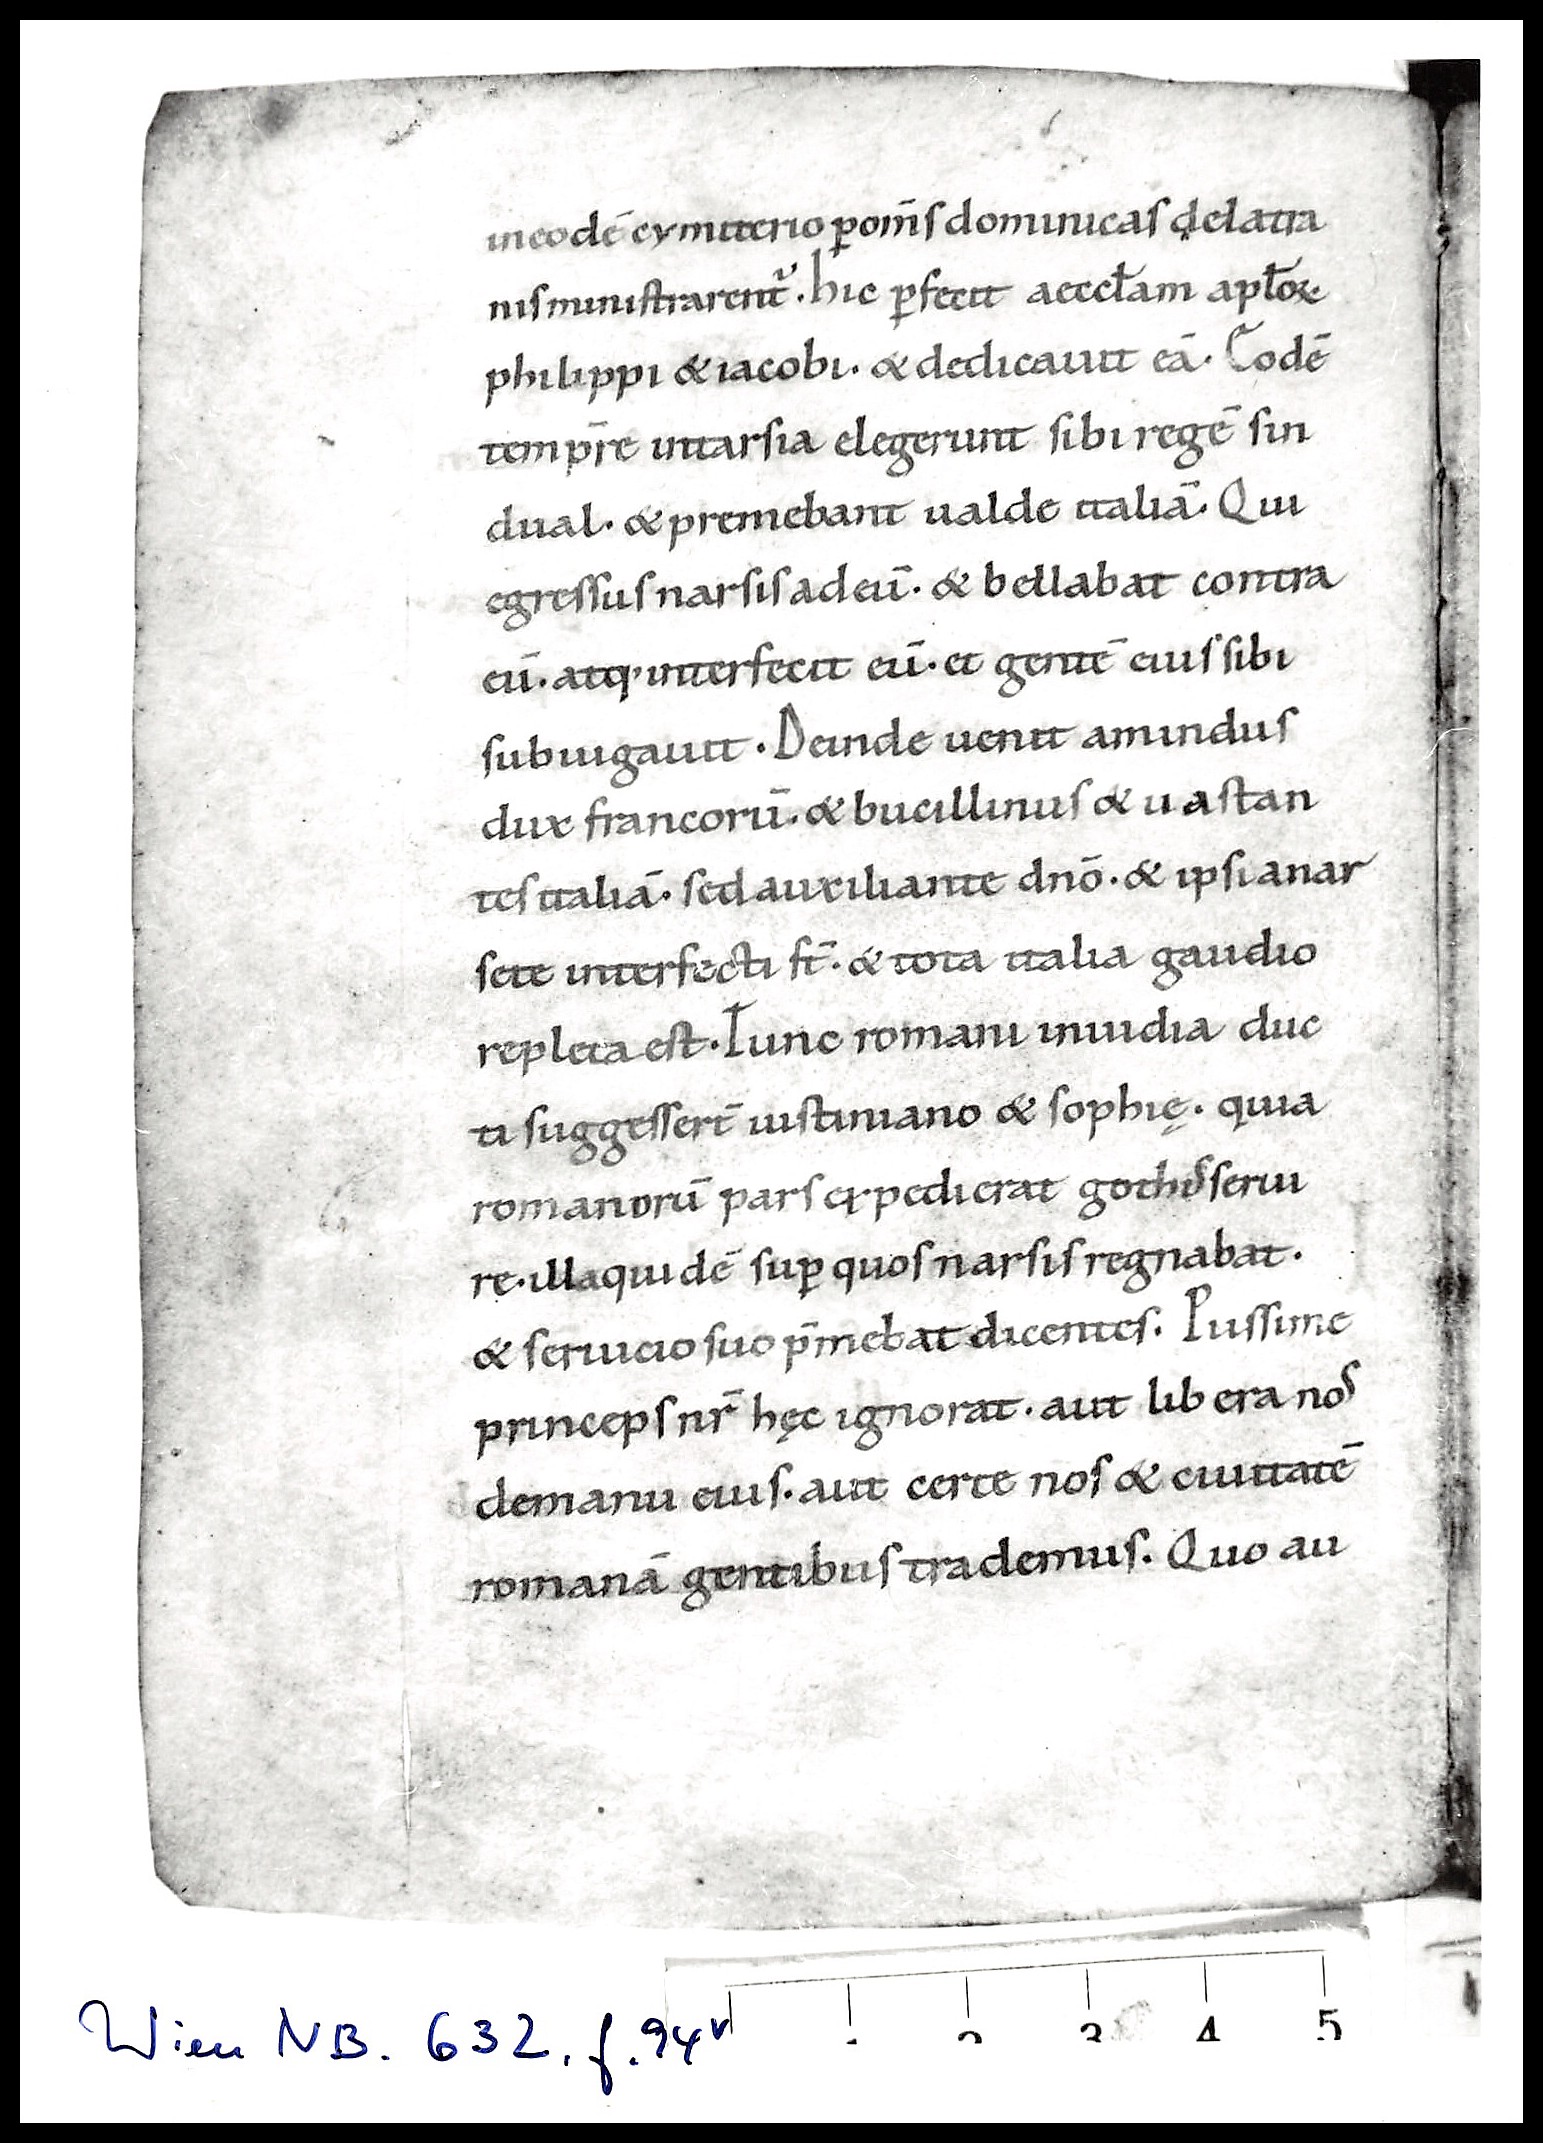 in eodē cymiterio ꝑ om̄s dominicas delatra
nis ministrarent᷑. hic ꝑfecit aeccl̄am apl̄oꝝ
philippi & iacobi. & dedicauit eā. Eodē
temp̄re intarsia elegerunt sibi regē sin
dual. & premebant ualde italiā. Qui
egressus narsis ad eū. & bellabat contra
eū. atq; interfecit eū. et gentē eius sibi
subiugauit. Deinde uenit amindus
dux francorū. & bucillinus & uastan
tes italiā. sed auxiliante dn̄o. & ipsi anar
sete interfecti st̄. & tota italia gaudio
repleta est. Tunc romani inuidia duc
ti suggessert̄ iustiniano & sophię. quia
romanorū pars expedierat gothis serui
re. illa quidē suꝑ quos narsis regnabat.
& seruicio suo p̄mebat dicentes. Piissime
princeps nr̄ hęc ignorat. aut libera nos
demanu eius. aut certe nos & ciuitatē
romanā gentibus trademus. Quo au
Wien NB. 632, f. 94v
1 2 3 4 5